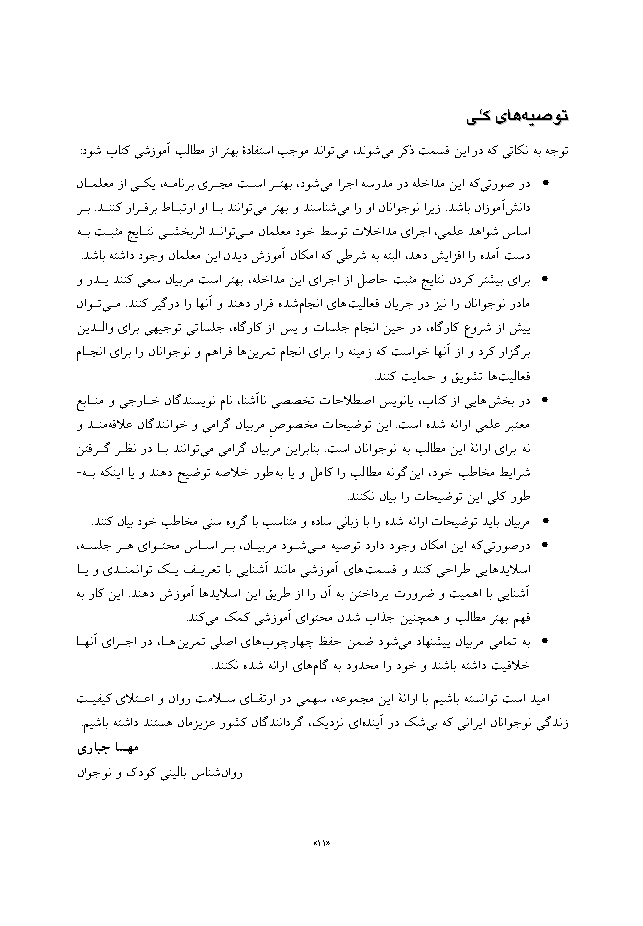 توصیه‌های کلی
توجه به نکاتی که در این قسمت ذکر می‌شوند، می‌تواند موجب استفادۀ بهتر از مطالب آموزشی کتاب شود:
• در صورتی‌که این مداخله در مدرسه اجرا می‌شود، بهتر است مجری برنامه، یکی از معلمان
دانش‌آموزان باشد. زیرا نوجوانان او را می‌شناسند و بهتر می‌توانند با او ارتباط برقرار کنند. بر
اساس شواهد علمی، اجرای مداخلات توسط خود معلمان می‌تواند اثربخشی نتایج مثبت به
دست آمده را افزایش دهد، البته به شرطی که امکان آموزش دیدن این معلمان وجود داشته باشد.
• برای بیشتر کردن نتایج مثبت حاصل از اجرای این مداخله، بهتر است مربیان سعی کنند پدر و
مادر نوجوانان را نیز در جریان فعالیت‌های انجام‌شده قرار دهند و آنها را درگیر کنند. می‌توان
پیش از شروع کارگاه، در حین انجام جلسات و پس از کارگاه، جلساتی توجیهی برای والدین
برگزار کرد و از آنها خواست که زمینه را برای انجام تمرین‌ها فراهم و نوجوانان را برای انجام
فعالیت‌ها تشویق و حمایت کنند.
• در بخش‌هایی از کتاب، پانویس اصطلاحات تخصصی ناآشنا، نام نویسندگان خارجی و منابع
معتبر علمی ارائه شده است. این توضیحات مخصوص مربیان گرامی و خوانندگان علاقه‌مند و
نه برای ارائۀ این مطالب به نوجوانان است. بنابراین مربیان گرامی می‌توانند با در نظر گرفتن
شرایط مخاطب خود، این‌گونه مطالب را کامل و یا به‌طور خلاصه توضیح دهند و یا اینکه به-
طور کلی این توضیحات را بیان نکنند.
• مربیان باید توضیحات ارائه شده را با زبانی ساده و متناسب با گروه سنی مخاطب خود بیان کنند.
• درصورتی‌که این امکان وجود دارد توصیه می‌شود مربیان، بر اساس محتوای هر جلسه،
اسلایدهایی طراحی کنند و قسمت‌های آموزشی مانند آشنایی با تعریف یک توانمندی و یا
آشنایی با اهمیت و ضرورت پرداختن به آن را از طریق این اسلایدها آموزش دهند. این کار به
فهم بهتر مطالب و همچنین جذاب شدن محتوای آموزشی کمک می‌کند.
• به تمامی مربیان پیشنهاد می‌شود ضمن حفظ چهارچوب‌های اصلی تمرین‌ها، در اجرای آنها
خلاقیت داشته باشند و خود را محدود به گام‌های ارائه شده نکنند.
امید است توانسته باشیم با ارائۀ این مجموعه، سهمی در ارتقای سلامت روان و اعتلای کیفیت
زندگی نوجوانان ایرانی که بی‌شک در آینده‌ای نزدیک، گردانندگان کشور عزیزمان هستند داشته باشیم.
مهسا جباری
روان‌شناس بالینی کودک و نوجوان
«۱۱»